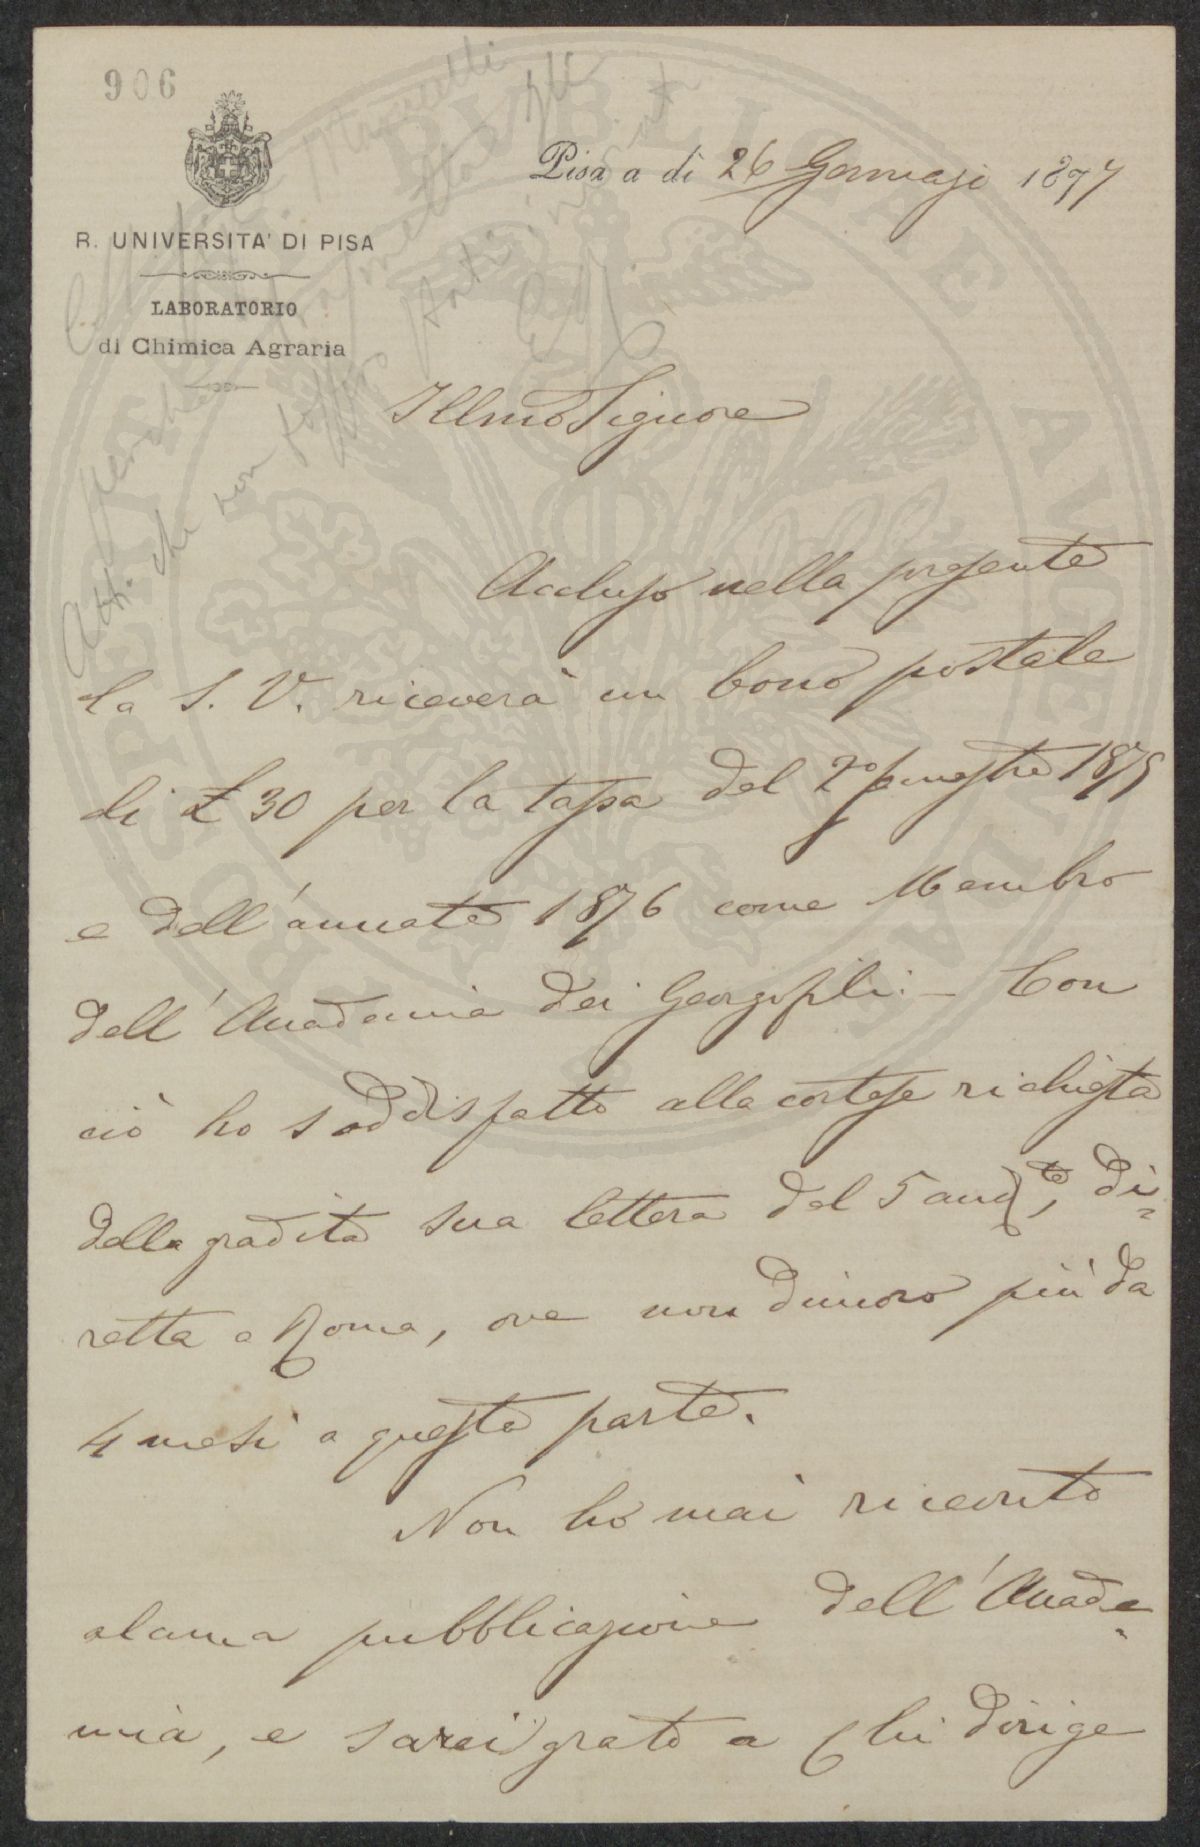 906
R. UNIVERSITA' DI PISA
LABORATORIO
di Chimica Agraria
Pisa a dì 26 Gennajo 1877
Illmo Signore
Accluso nella presente
la S. V. riceverà un bono postale
di £ 30 per la tassa del 2º semestre 1875
e dell'annata 1876 come Membro
dell'Accademia dei Georgofili. – Con
ciò ho soddisfatto alla cortese richiesta
della gradita sua lettera del 5 and.te, di=
retta a Roma, ove non dimoro più da
4 mesi a questa parte.
Non ho mai ricevuto
alcuna pubblicazione dell'Accade=
mia, e sarei grato a Chi dirige
PROSPERITATI PUBLICAE AUGENDAE